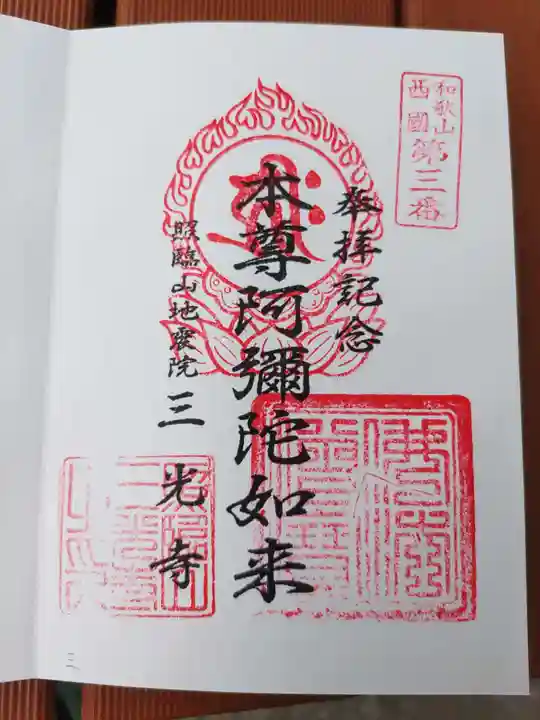 和歌山
西國
第三番
奉拝記念
本尊阿彌陀如来
照臨山地蔵院三光寺
三